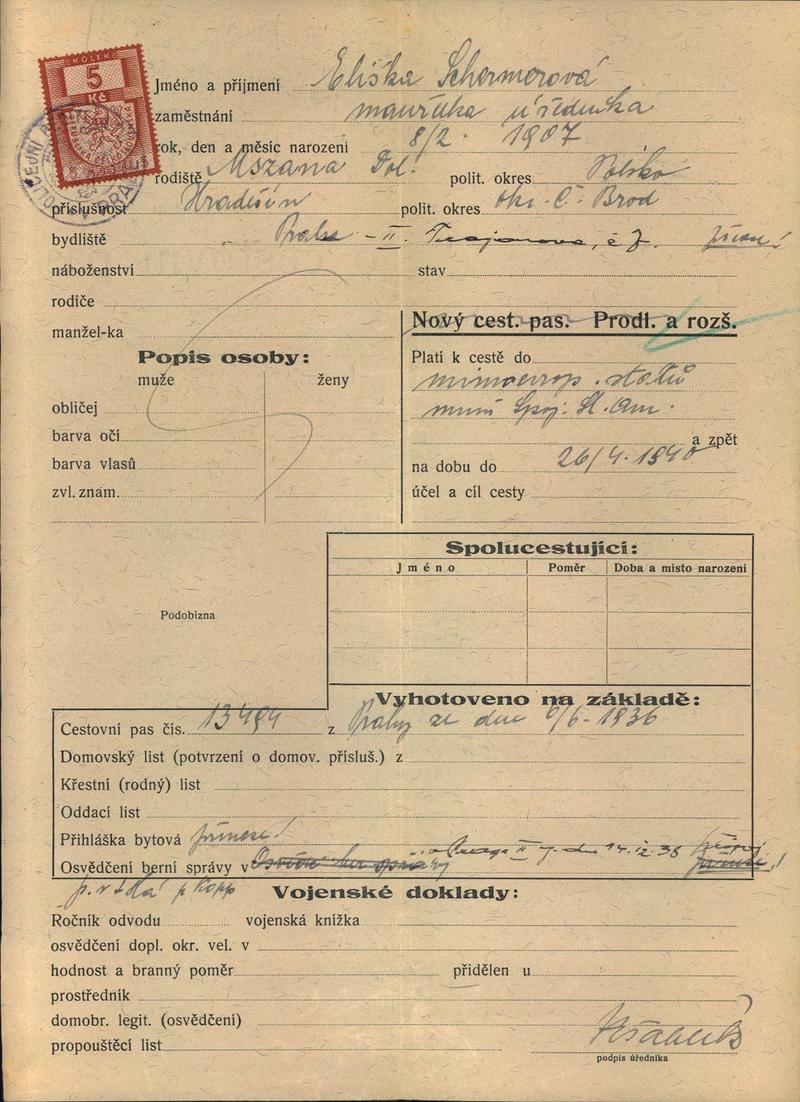 KOLEK
5
Kč
Jméno a příjmení Eliška Schermerová
zaměstnání úřednika
rok, den a měsíc narození 8/2. 1907
rodiště Mszana Dol. polit. okres Polsko
příslušnost Hradešín polit. okres okr. Č. Brod
bydliště Praha - II. Trojanova, č 7.
náboženství stav
rodiče
manžel-ka
Nový cest. pas. Prodl. a rozš.
Popis osoby:
muže ženy
obličej
barva očí
barva vlasů
zvl. znám.
Platí k cestě do
mimoevrop. států
mimo Spoj. St. Am.
a zpět
na dobu do 26/4. 1940
účel a cíl cesty
Spolucestující:
Jméno Poměr Doba a místo narození
Podobizna
Vyhotoveno na základě:
Cestovní pas čís. 13494 z Prahy ze dne 9/6 - 1936
Domovský list (potvrzení o domov. přísluš.) z
Křestní (rodný) list
Oddací list
Přihláška bytová
Osvědčení berní správy v
Vojenské doklady:
Ročník odvodu vojenská knížka
osvědčení dopl. okr. vel. v
hodnost a branný poměr přidělen u
prostředník
domobr. legit. (osvědčení)
propouštěcí list
podpis úředníka